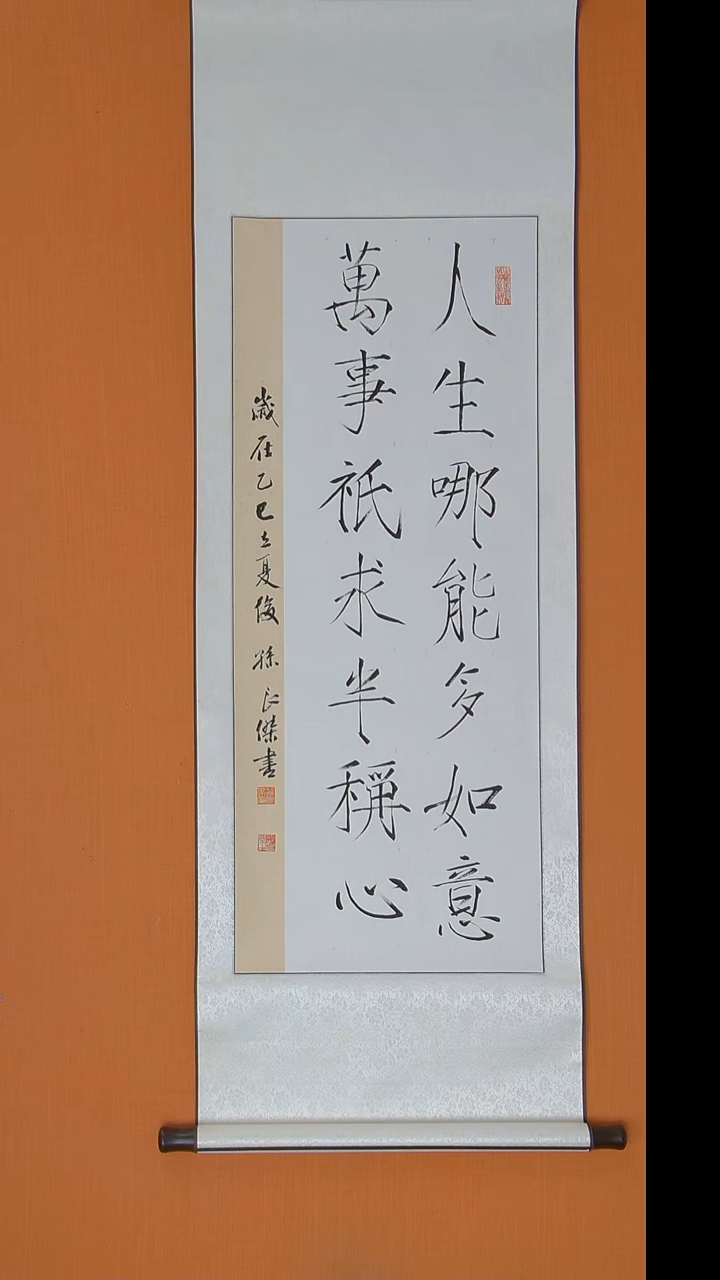 人生哪能多如意
萬事祇求半稱心
歲在乙巳立夏後 孫永傑書